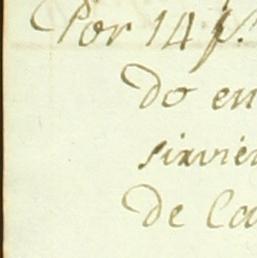 Por 14 p.
do en
sirvién
de Ca